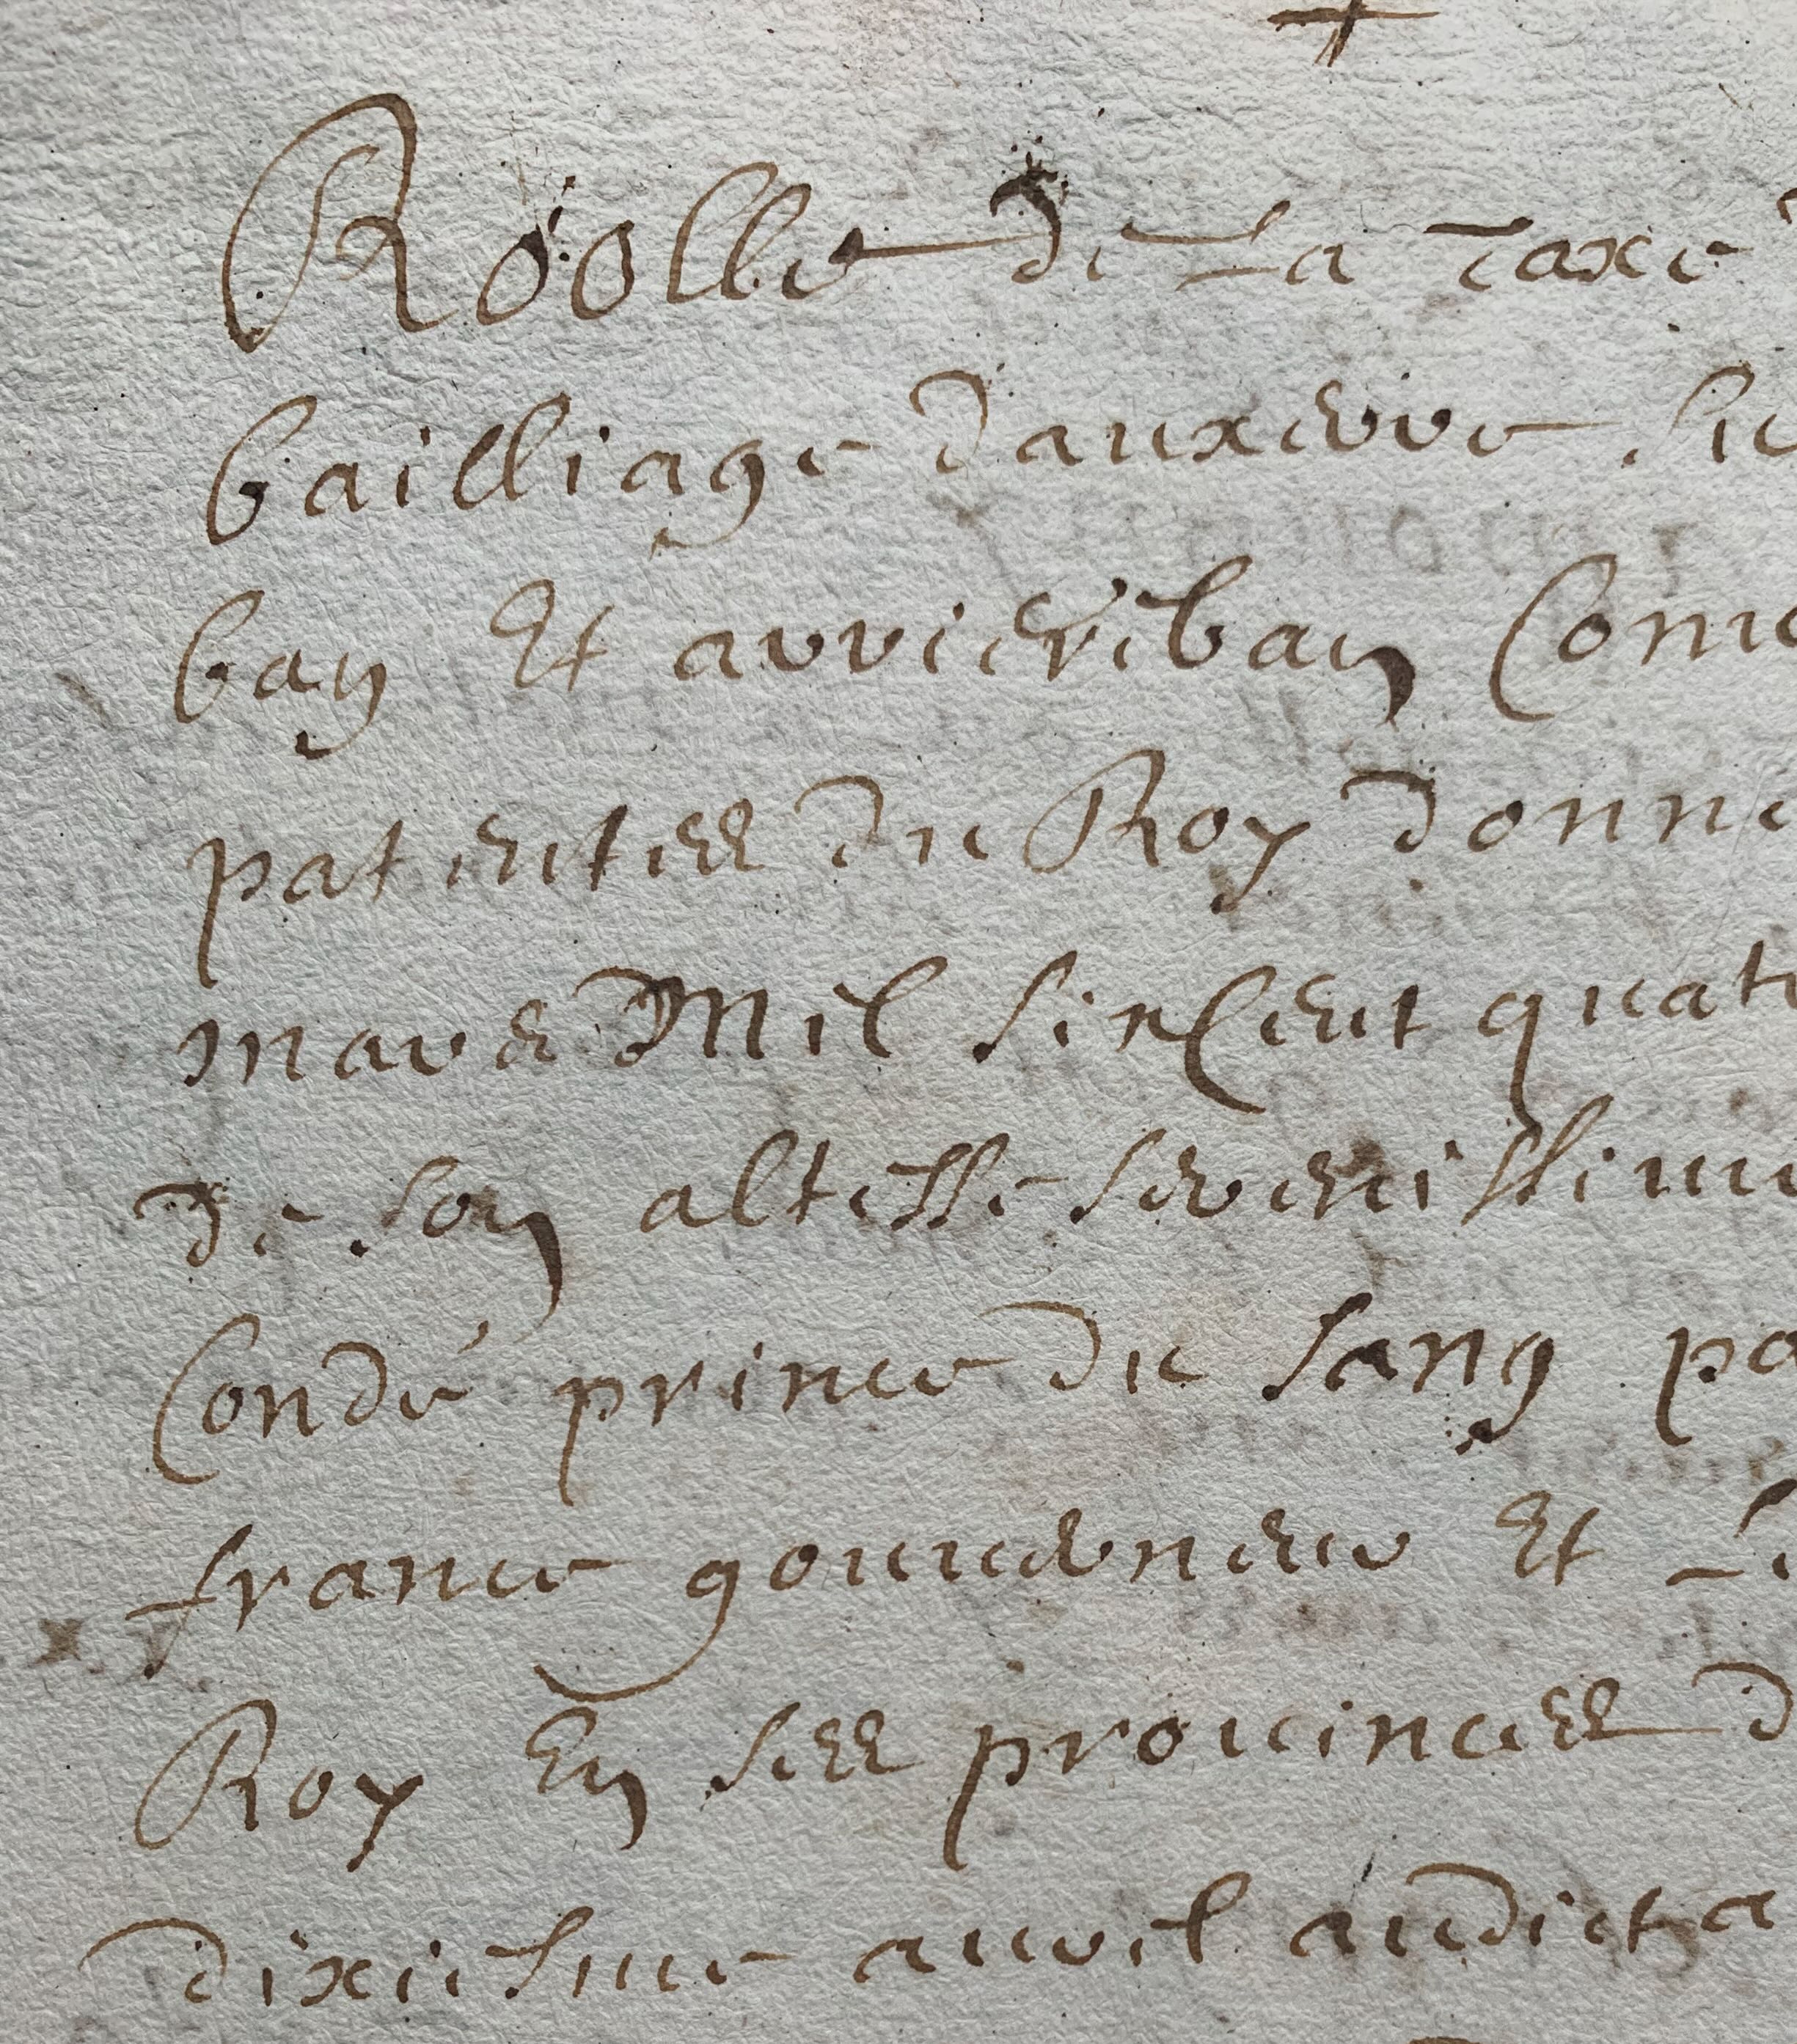 Roolle de La Taxe
bailliage dauxerre su
ban Et arriereban Com
patentes du Roy donne
mars Mil six Cent quat
de son altesse serenissim
Condé prince du sang pa
france gouuerneur Et L
Roy En ses prouinces d
dixiesme auril audict a